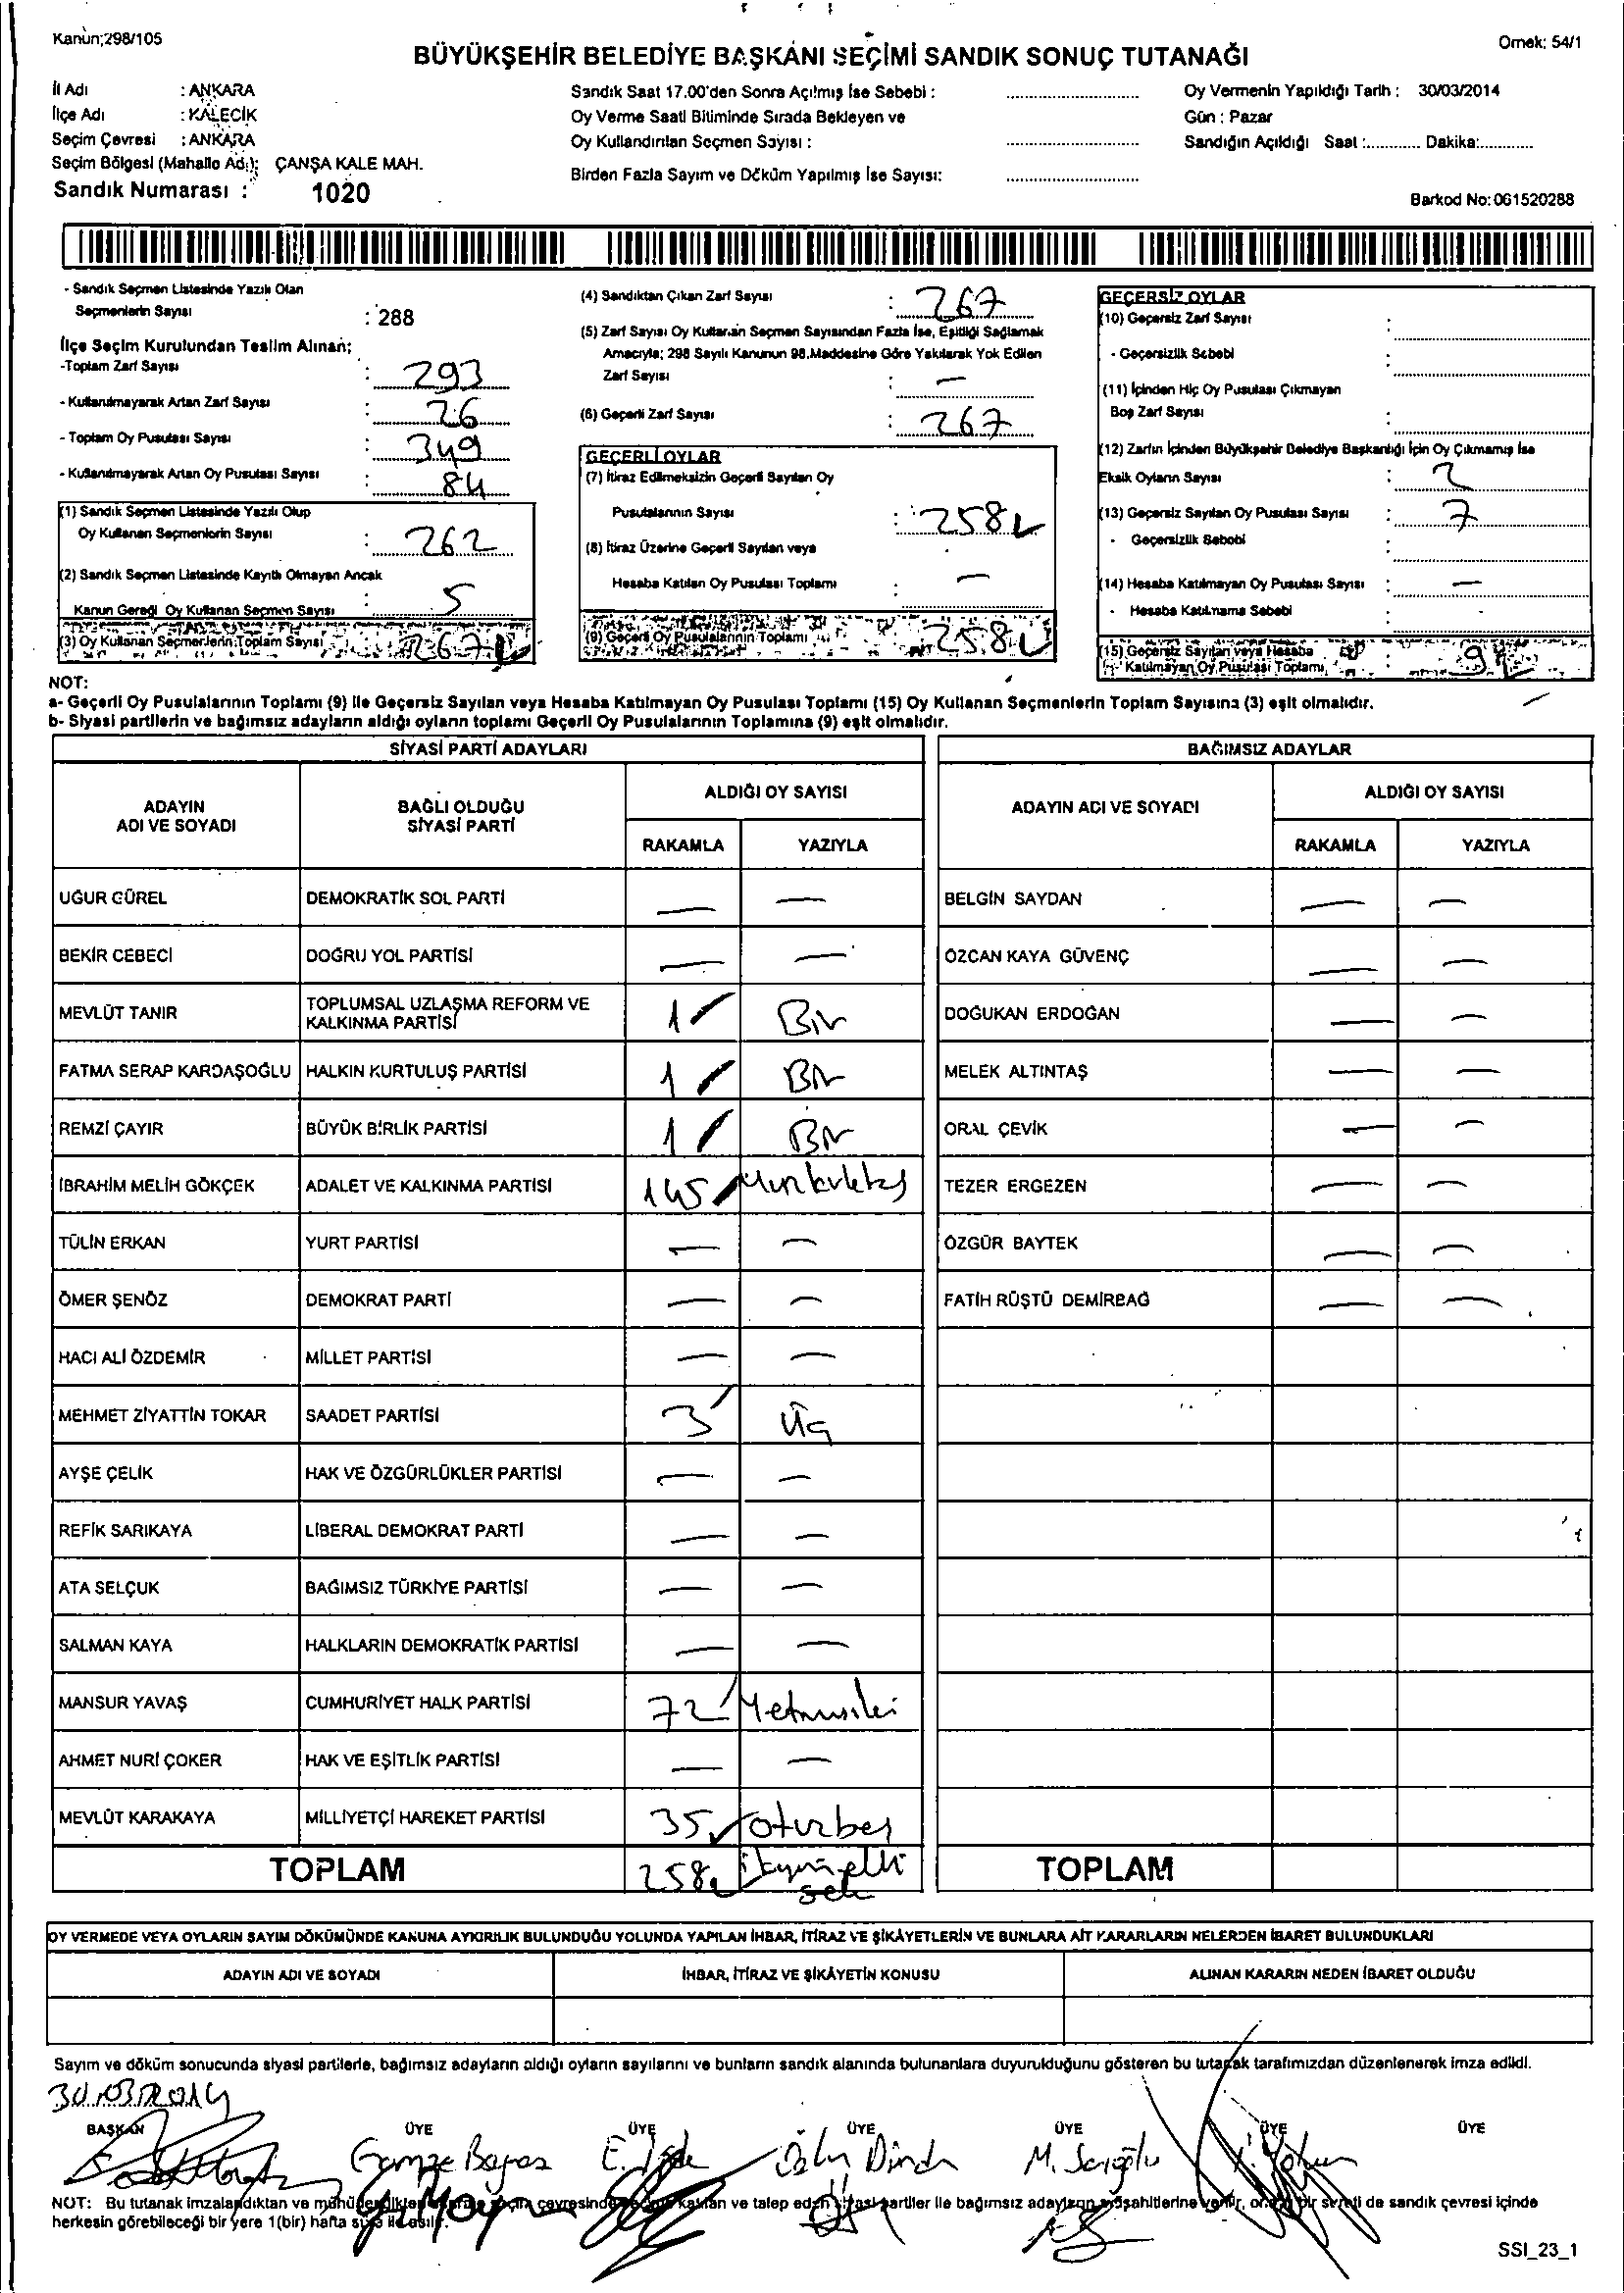 Kanun;298/105
Örnek: 54/1
BÜYÜKŞEHİR BELEDİYE BAŞKANI SEÇİMİ SANDIK SONUÇ TUTANAĞI
İl Adı : ANKARA
İlçe Adı : KALECİK
Seçim Çevresi : ANKARA
Seçim Bölgesi (Mahalle Adı): ÇANŞA KALE MAH.
Sandık Numarası : 1020
Sandık Saat 17.00'den Sonra Açılmış İse Sebebi :
Oy Verme Saati Bitiminde Sırada Bekleyen ve
Oy Kullandırılan Seçmen Sayısı :
Birden Fazla Sayım ve Döküm Yapılmış İse Sayısı:
Oy Vermenin Yapıldığı Tarih : 30/03/2014
Gün : Pazar
Sandığın Açıldığı Saat :............ Dakika:............
Barkod No:061520288
- Sandık Seçmen Listesinde Yazılı Olan
Seçmenlerin Sayısı : 288
İlçe Seçim Kurulundan Teslim Alınan;
-Toplam Zarf Sayısı : 293
- Kullanılmayarak Artan Zarf Sayısı : 26
- Toplam Oy Pusulası Sayısı : 349
- Kullanılmayarak Artan Oy Pusulası Sayısı : 84
(1) Sandık Seçmen Listesinde Yazılı Olup
Oy Kullanan Seçmenlerin Sayısı : 262
(2) Sandık Seçmen Listesinde Kayıtlı Olmayan Ancak
Kanun Gereği Oy Kullanan Seçmen Sayısı : 5
(3) Oy Kullanan Seçmenlerin Toplam Sayısı : 267
(4) Sandıktan Çıkan Zarf Sayısı : 267
(5) Zarf Sayısı Oy Kullanan Seçmen Sayısından Fazla İse, Eşitliği Sağlamak
Amacıyla; 298 Sayılı Kanunun 98.Maddesine Göre Yakılarak Yok Edilen
Zarf Sayısı : —
(6) Geçerli Zarf Sayısı : 267
GEÇERLİ OYLAR
(7) İtiraz Edilmeksizin Geçerli Sayılan Oy
Pusulalarının Sayısı : 258
(8) İtiraz Üzerine Geçerli Sayılan veya
Hesaba Katılan Oy Pusulası Toplamı : —
(9) Geçerli Oy Pusulalarının Toplamı : 258
GEÇERSİZ OYLAR
(10) Geçersiz Zarf Sayısı :
- Geçersizlik Sebebi :
(11) İçinden Hiç Oy Pusulası Çıkmayan
Boş Zarf Sayısı :
(12) Zarfın İçinden Büyükşehir Belediye Başkanlığı İçin Oy Çıkmamış İse
Eksik Oyların Sayısı : 2
(13) Geçersiz Sayılan Oy Pusulası Sayısı : 7
- Geçersizlik Sebebi :
(14) Hesaba Katılmayan Oy Pusulası Sayısı : —
- Hesaba Katılmama Sebebi :
(15) Geçersiz Sayılan veya Hesaba
Katılmayan Oy Pusulası Toplamı : 9
NOT:
a- Geçerli Oy Pusulalarının Toplamı (9) İle Geçersiz Sayılan veya Hesaba Katılmayan Oy Pusulası Toplamı (15) Oy Kullanan Seçmenlerin Toplam Sayısına (3) eşit olmalıdır.
b- Siyasi partilerin ve bağımsız adayların aldığı oyların toplamı Geçerli Oy Pusulalarının Toplamına (9) eşit olmalıdır.
SİYASİ PARTİ ADAYLARI
ADAYIN ADI VE SOYADI BAĞLI OLDUĞU SİYASİ PARTİ ALDIĞI OY SAYISI
RAKAMLA YAZIYLA
UĞUR GÜREL DEMOKRATİK SOL PARTİ — —
BEKİR CEBECİ DOĞRU YOL PARTİSİ — —
MEVLÜT TANIR TOPLUMSAL UZLAŞMA REFORM VE KALKINMA PARTİSİ 1 Bir
FATMA SERAP KARDAŞOĞLU HALKIN KURTULUŞ PARTİSİ 1 Bir
REMZİ ÇAYIR BÜYÜK BİRLİK PARTİSİ 1 Bir
İBRAHİM MELİH GÖKÇEK ADALET VE KALKINMA PARTİSİ 145
TÜLİN ERKAN YURT PARTİSİ — —
ÖMER ŞENÖZ DEMOKRAT PARTİ — —
HACI ALİ ÖZDEMİR MİLLET PARTİSİ — —
MEHMET ZİYATTİN TOKAR SAADET PARTİSİ 3 Üç
AYŞE ÇELİK HAK VE ÖZGÜRLÜKLER PARTİSİ — —
REFİK SARIKAYA LİBERAL DEMOKRAT PARTİ — —
ATA SELÇUK BAĞIMSIZ TÜRKİYE PARTİSİ — —
SALMAN KAYA HALKLARIN DEMOKRATİK PARTİSİ — —
MANSUR YAVAŞ CUMHURİYET HALK PARTİSİ 72 Yetmişiki
AHMET NURİ ÇOKER HAK VE EŞİTLİK PARTİSİ — —
MEVLÜT KARAKAYA MİLLİYETÇİ HAREKET PARTİSİ 35 oturbeş
TOPLAM 258 ikiyüzelli
sek
BAĞIMSIZ ADAYLAR
ADAYIN ADI VE SOYADI ALDIĞI OY SAYISI
RAKAMLA YAZIYLA
BELGİN SAYDAN — —
ÖZCAN KAYA GÜVENÇ — —
DOĞUKAN ERDOĞAN — —
MELEK ALTINTAŞ — —
ORAL ÇEVİK — —
TEZER ERGEZEN — —
ÖZGÜR BAYTEK — —
FATİH RÜŞTÜ DEMİRBAĞ — —
TOPLAM
OY VERMEDE VEYA OYLARIN SAYIM DÖKÜMÜNDE KANUNA AYKIRILIK BULUNDUĞU YOLUNDA YAPILAN İHBAR, İTİRAZ VE ŞİKÂYETLERİN VE BUNLARA AİT KARARLARIN NELERDEN İBARET BULUNDUKLARI
ADAYIN ADI VE SOYADI İHBAR, İTİRAZ VE ŞİKÂYETİN KONUSU ALINAN KARARIN NEDEN İBARET OLDUĞU
Sayım ve döküm sonucunda siyasi partilerle, bağımsız adayların aldığı oyların sayılarını ve bunların sandık alanında bulunanlara duyurulduğunu gösteren bu tutanak tarafımızdan düzenlenerek imza edildi.
30.03.2014
BAŞKAN ÜYE ÜYE ÜYE ÜYE ÜYE ÜYE
Gamze
NOT: Bu tutanak imzalandıktan ve mühürlendikten sonra seçim çevresinde seçime katılan ve talep eden siyasi partiler ile bağımsız adayların müşahitlerine verilir, onaylı bir sureti de sandık çevresi içinde
herkesin görebileceği bir yere 1(bir) hafta süre ile asılır.
SSI_23_1